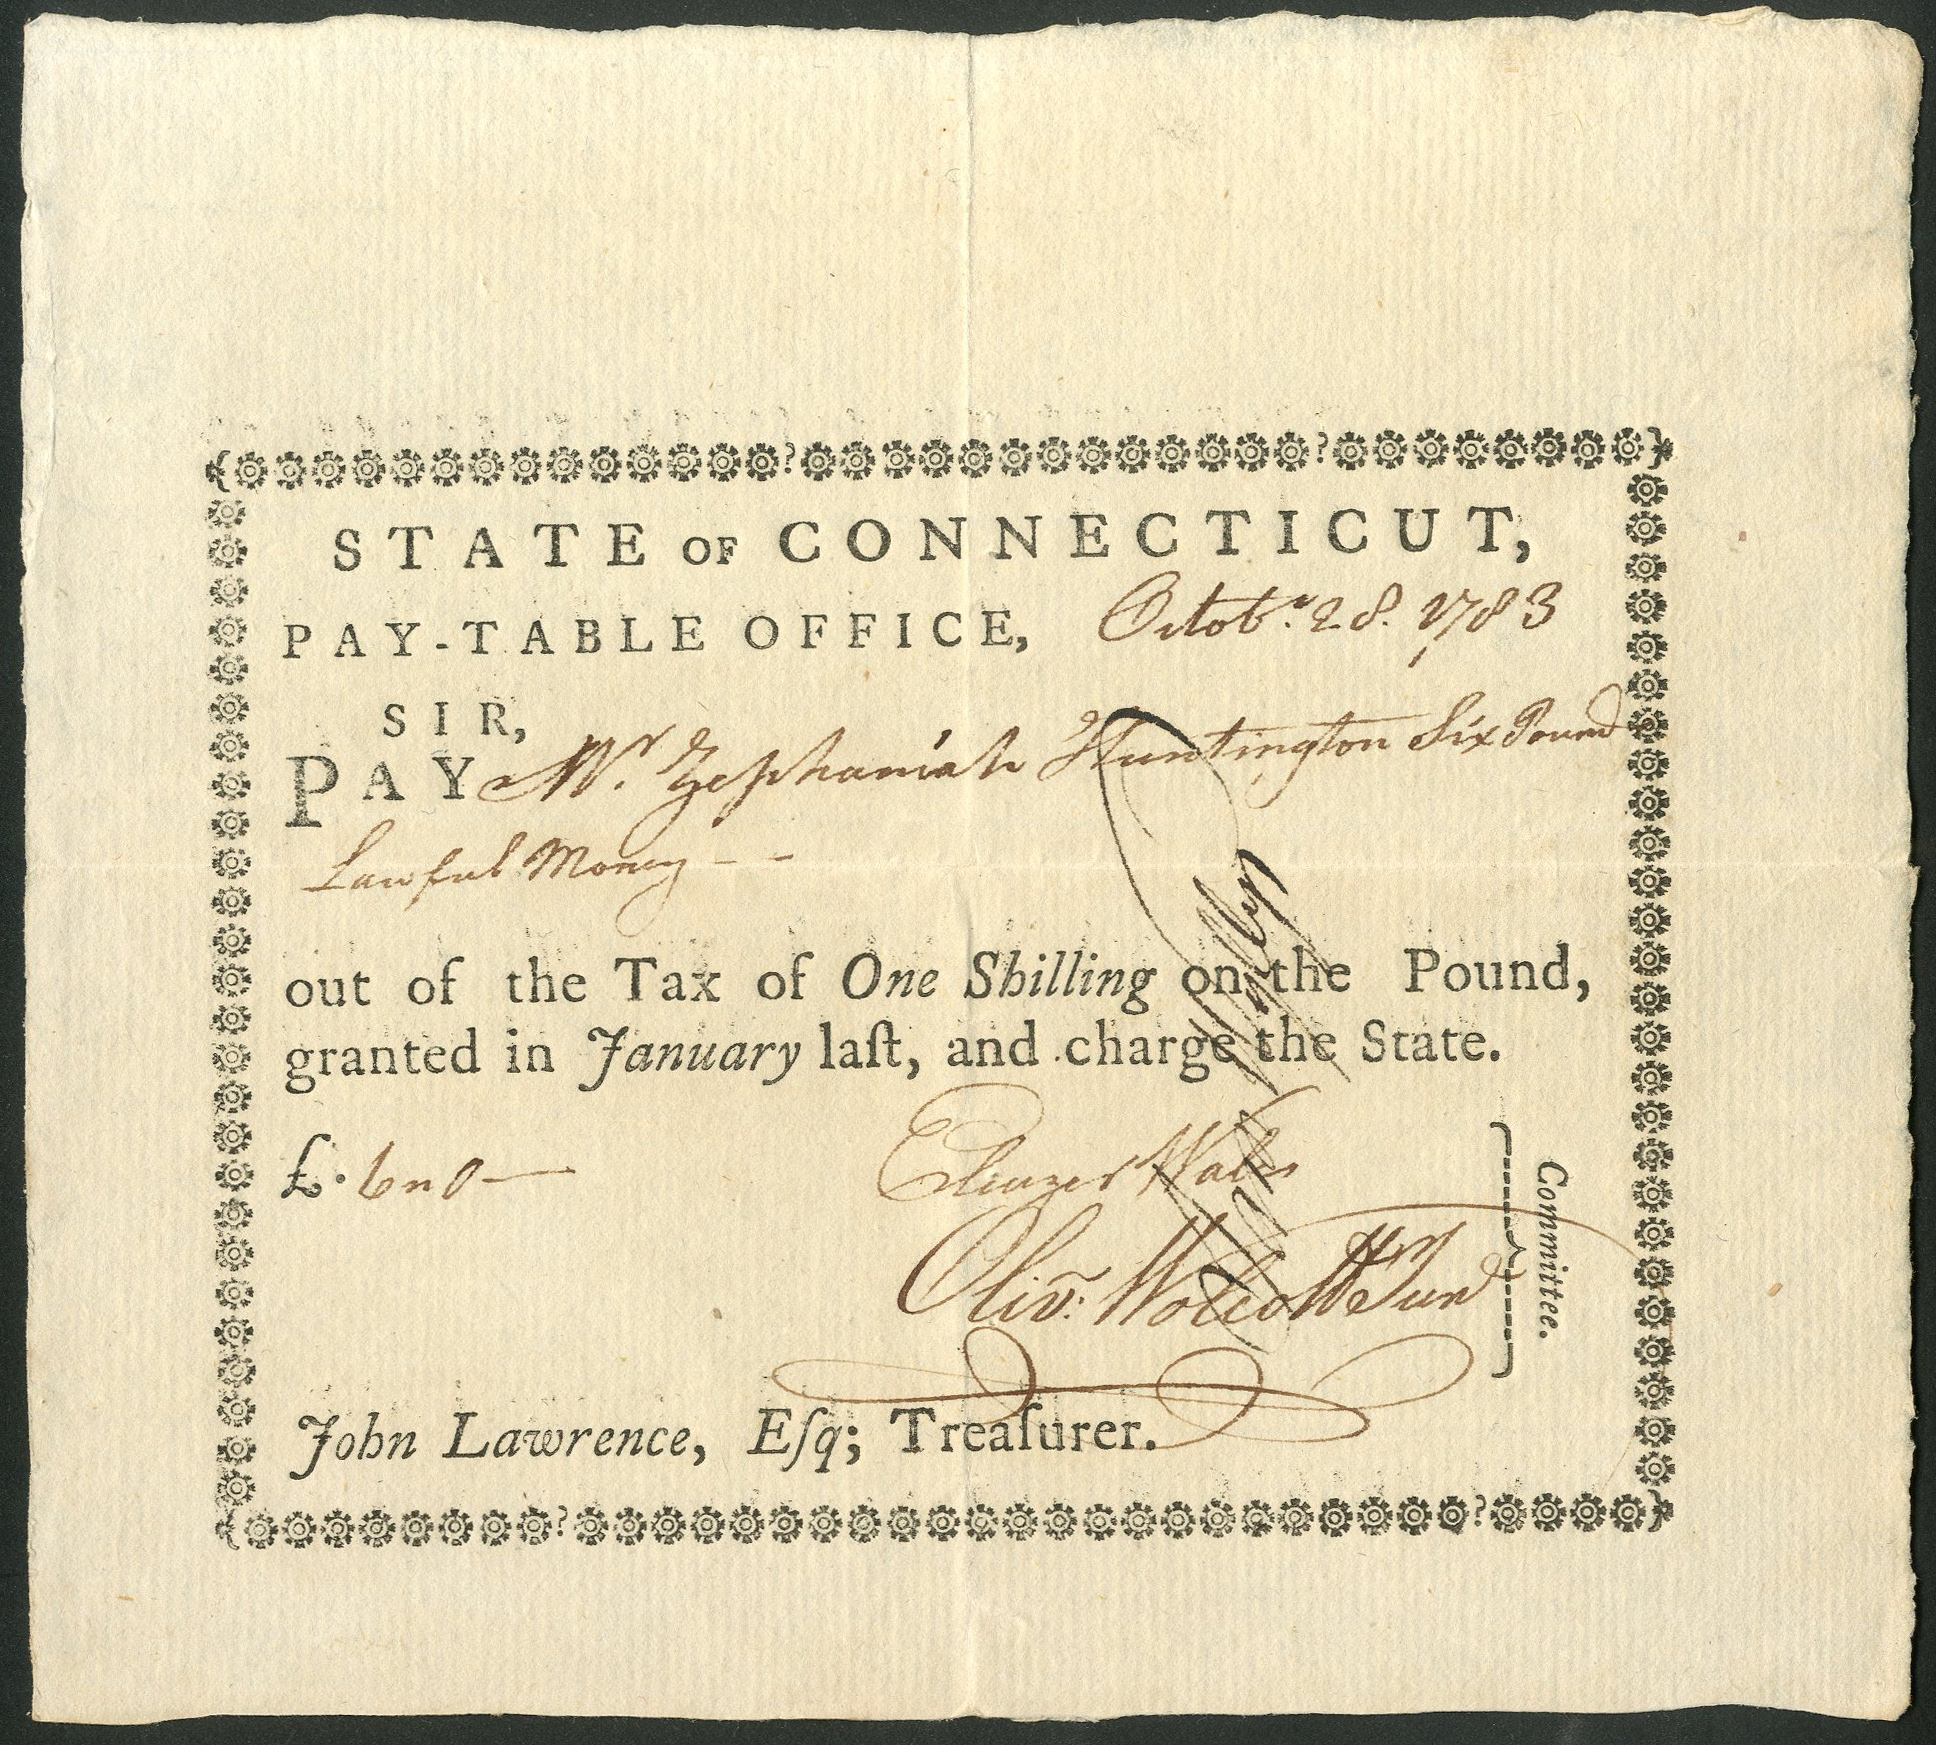 STATE OF CONNECTICUT,
PAY-TABLE OFFICE, Octobr. 28. 1783
SIR,
PAY Mr. Zephaniah Huntington Six Pound
Lawful Money - -
out of the Tax of One Shilling on the Pound,
granted in January laſt, and charge the State.
£. 6 " 0 —
Eleazer Wales
Olivr. Wolcott Junr
Committee.
John Lawrence, Eſq; Treaſurer.